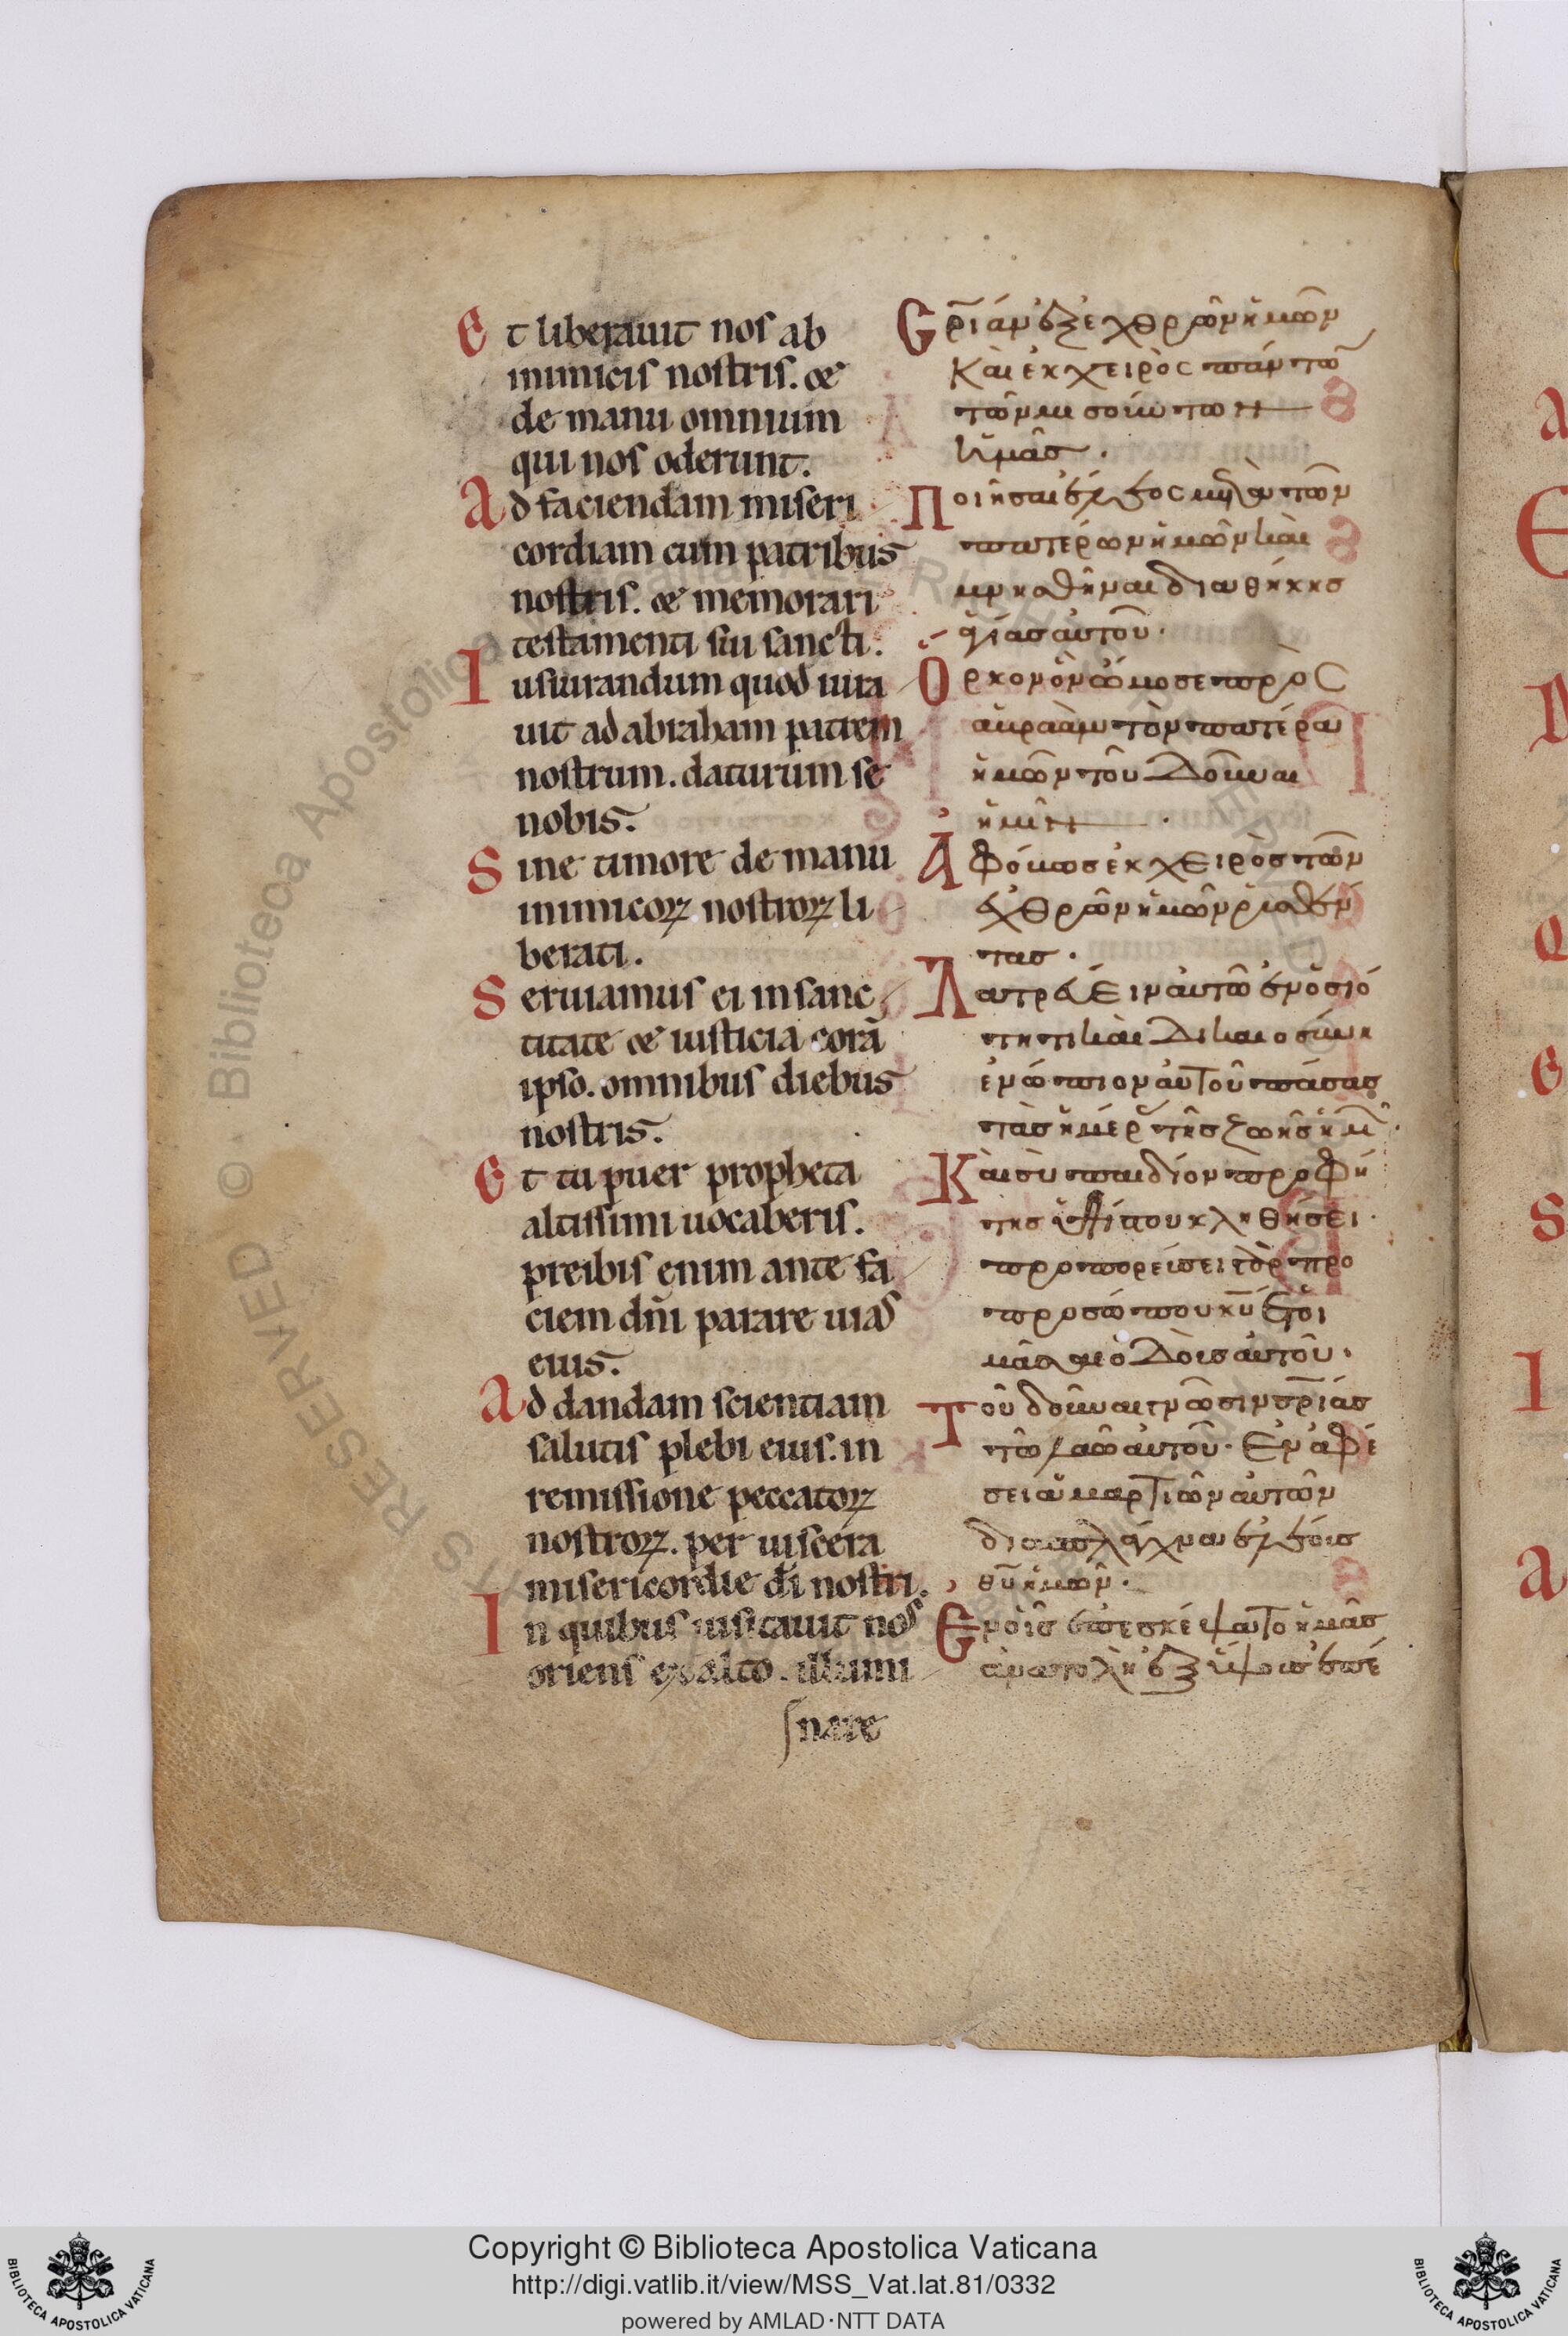 Et liberauit nos ab
inimicis nostris. &
de manu omnium
qui nos oderunt.
Ad faciendam miseri
cordiam cum patribus
nostris. & memorari
testamenti sui sancti.
Iusiurandum quod iura
uit ad abraham patrem
nostrum. daturum se
nobis.
Sine timore de manu
inimicoꝝ nostroꝝ li
berati.
Seruiamus ei in sanc
titate & iusticia corā
ipso. omnibus diebus
nostris.
Et tu puer propheta
altissimi uocaberis.
preibis enim ante fa
ciem dn̄i parare uias
eius.
Ad dandam scientiam
salutis plebi eius. in
remissione peccatoꝝ
nostroꝝ. per uiscera
misericordie dī nostri.
In quibus uisitauit nos
oriens ex alto. illumi
nare
Cρ̅ίαν ἐξ ἐχθρῶν ἡμῶν
Καὶ ἐκ χειρὸς πάντω̅
τῶν μισούντων
ἡμᾶσ.
Ποιῆσαι ἔλεος μετὰ τῶν
πατέρων ἡμῶν καὶ
μνησθῆναι διαθήκησ
ἁγίασ αὐτοῦ.
Ὅρκον ὃν ὤμοσε πρὸς
ἀβραὰμ τὸν πατέρα
ἡμῶν τοῦ Δοῦναι
ἡμῖν.
Ἀφόβωσ ἐκ χειρὸσ τῶν
ἐχθρῶν ἡμῶν ῥυσθέν
τασ.
Λατρεύειν αὐτῶ ἐν ὁσιό
τητι καὶ Δικαιοσύνη
ἐνώπιον αὐτοῦ πάσασ
τὰσ ἡμέρ τῆσ ζωῆσ ἡμ.
Καὶ σὺ παιδίον προφή
τησ ὑψίστου κληθήσει.
προπορεύσει γὰρ πρὸ
προσώπου κ̅υ̅ ἑτοι
μάσαι ὁΔοὺσ αὐτοῦ.
Τοῦ δοῦναι γνῶσιν σρ̅ίασ
τῶ λαῶ αὐτοῦ. Ἐν ἀφέ
σει ἁμαρτιῶν αὐτῶν
διὰ σπλάγχνα ἐλέουσ
θ̅υ̅ ἡμῶν.
Ἐν οἷσ ἐπεσκέψατο ἡμᾶσ
ἀνατολὴ ἐξ ὕψουσ ἐπέ
Copyright © Biblioteca Apostolica Vaticana
http://digi.vatlib.it/view/MSS_Vat.lat.81/0332
powered by AMLAD·NTT DATA
BIBLIOTECA APOSTOLICA VATICANA
BIBLIOTECA APOSTOLICA VATICANA